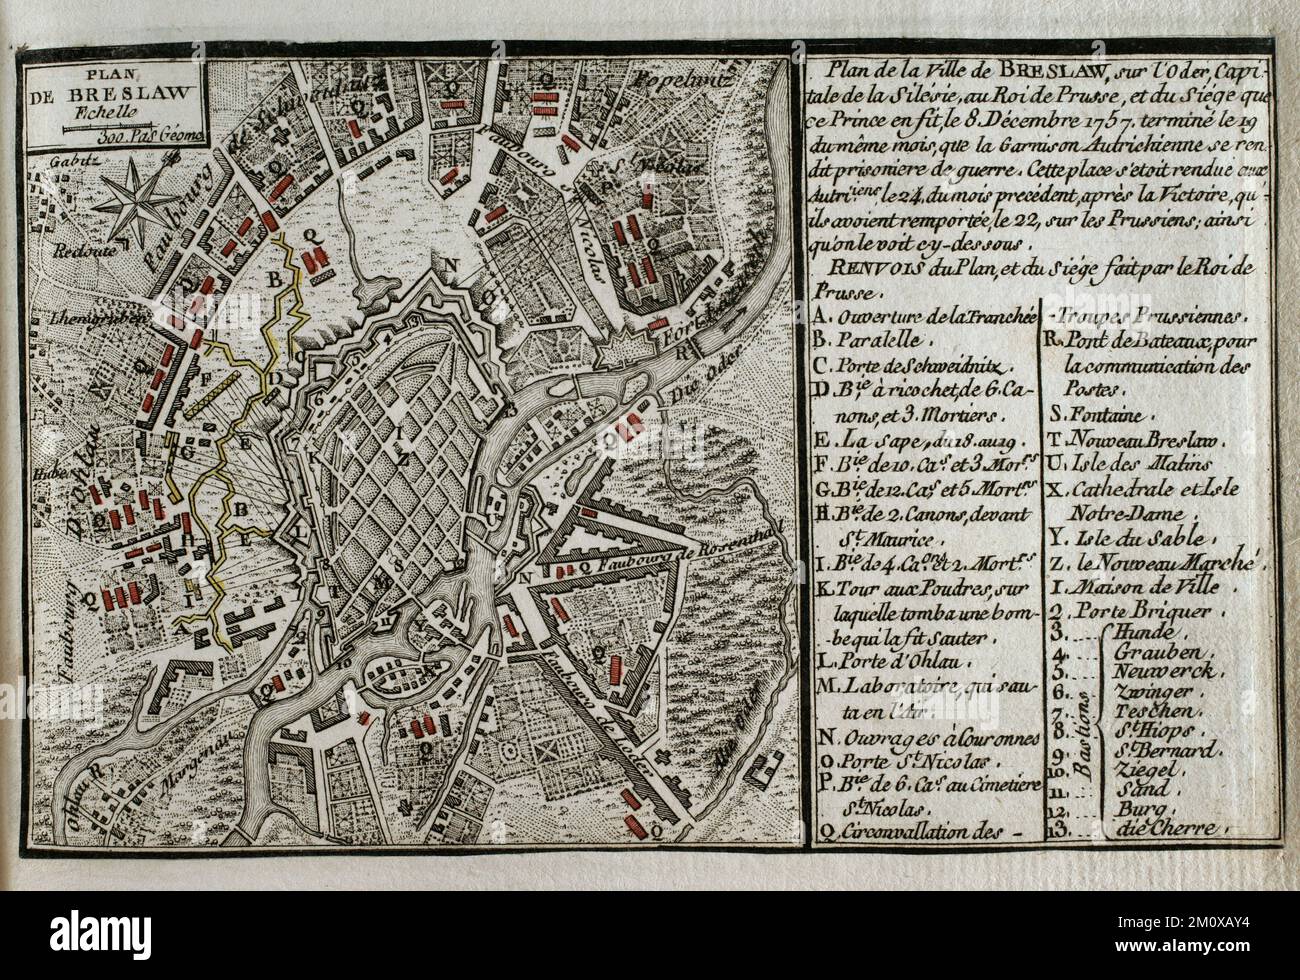 PLAN
DE BRESLAW
Echelle
300. Pas Géome.
Gabitz
Redoute
Lhemgruben
Hube
Faubourg
Faubourg
d'ohlau
Faubourg S.
Nicolas
Popelwitz
Die Oder
Faubourg de Rosenthal
Faubourg de l'oder
Margenau
ohlau R.
Plan de la Ville de BRESLAW, sur l'Oder, Capi-
tale de la Silésie, au Roi de Prusse, et du Siége que
ce Prince en fit, le 8. Décembre 1757. terminé le 19
du même mois, que la Garnison Autrichienne se ren
dit prisoniere de guerre. Cette place s'etoit rendue aux
Autriens, le 24, du mois precedent, après la Victoire, qu-
ils avoient remportée, le 22, sur les Prussiens; ainsi
qu'on le voit cy-dessous.
RENVOIS du Plan, et du Siége fait par le Roi de
Prusse.
A. Ouverture de la Tranchée
B. Paralelle.
C. Porte de Schweidnitz.
D. Bie. à ricochet, de 6. Ca-
nons, et 3. Mortiers.
E. La Sape, du 18. au 19.
F. Bie de 10. Cas. et 3. Mors.
G. Bie de 12. Cas. et 5. Mortrs.
H. Bie de 2. Canons, devant
St. Maurice.
I. Bie de 4. Canons et 2. Mortrs
K. Tour aux Poudres, sur
laquelle tomba une bom-
-be qui la fit Sauter.
L. Porte d'Ohlau.
M. Laboratoire, qui sau-
ta en l'Air.
N. Ouvrages à Couronnes
O. Porte St. Nicolas.
P. Bie de 6. Cas. au Cimetiere
St. Nicolas.
Q. Circonvallation des -
-Troupes Prussiennes.
R. Pont de Bateaux, pour
la communication des
Postes.
S. Fontaine.
T. Nouveau Breslaw.
U. Isle des Matins
X. Cathedrale et Isle
Notre-Dame.
Y. Isle du Sable.
Z. le Nouveau Marché.
1. Maison de Ville.
2. Porte Briguer.
Bastions
3. Hunde.
4. Grauben.
5. Neuwerck.
6. Zwinger.
7. Teschen.
8. St. Hiops.
9. St. Bernard.
10. Ziegel.
11. Sand.
12. Burg.
13. die Cherre.
alamy
Image ID: 2M0XAY4
www.alamy.com